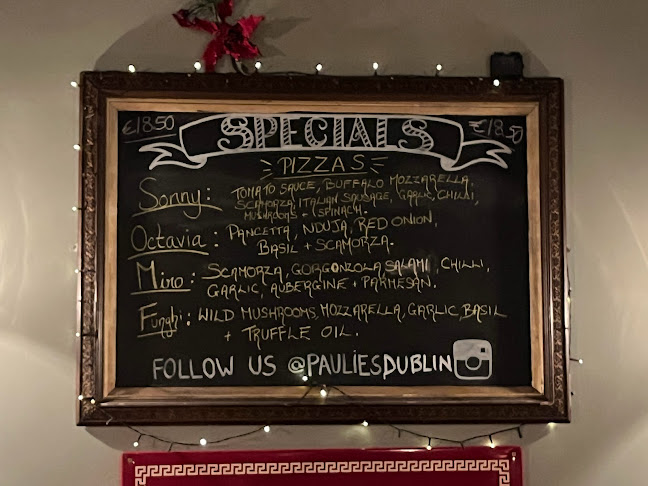 €18.50 SPECIALS €18.50
PIZZAS
Sonny: TOMATO SAUCE, BUFFALO MOZZARELLA,
SCAMORZA, ITALIAN SAUSAGE, GARLIC, CHILLI,
MUSHROOMS + SPINACH.
Octavia: PANCETTA, NDUJA, RED ONION,
BASIL + SCAMORZA.
Miro: SCAMORZA, GORGONZOLA, SALAMI, CHILLI,
GARLIC, AUBERGINE + PARMESAN.
Funghi: WILD MUSHROOMS, MOZZARELLA, GARLIC, BASIL
+ TRUFFLE OIL.
FOLLOW US @PAULIESDUBLIN